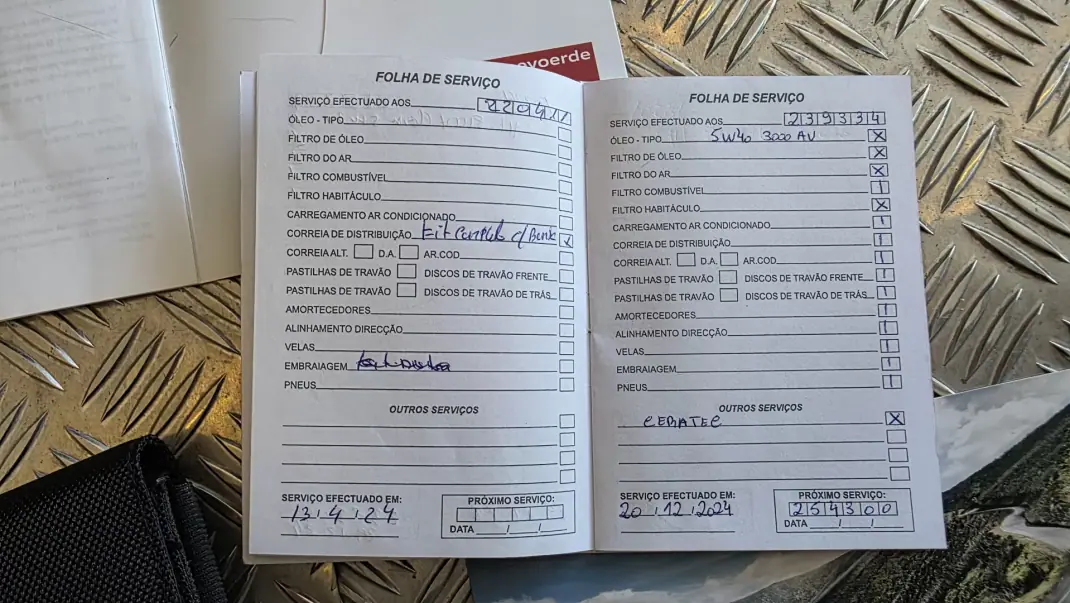 evoerde
FOLHA DE SERVIÇO
SERVIÇO EFECTUADO AOS
ÓLEO - TIPO
FILTRO DE ÓLEO
FILTRO DO AR
FILTRO COMBUSTÍVEL
FILTRO HABITÁCULO
CARREGAMENTO AR CONDICIONADO
CORREIA DE DISTRIBUIÇÃO Kit Completo c/ Bomba
CORREIA ALT. D.A. AR.COD
PASTILHAS DE TRAVÃO DISCOS DE TRAVÃO FRENTE
PASTILHAS DE TRAVÃO DISCOS DE TRAVÃO DE TRÁS
AMORTECEDORES
ALINHAMENTO DIRECÇÃO
VELAS
EMBRAIAGEM
PNEUS
OUTROS SERVIÇOS
SERVIÇO EFECTUADO EM:
13.4.24
PRÓXIMO SERVIÇO:
DATA / /
FOLHA DE SERVIÇO
SERVIÇO EFECTUADO AOS 239334
ÓLEO - TIPO 5W40 3000 AV X
FILTRO DE ÓLEO X
FILTRO DO AR X
FILTRO COMBUSTÍVEL
FILTRO HABITÁCULO X
CARREGAMENTO AR CONDICIONADO
CORREIA DE DISTRIBUIÇÃO
CORREIA ALT. D.A. AR.COD
PASTILHAS DE TRAVÃO DISCOS DE TRAVÃO FRENTE
PASTILHAS DE TRAVÃO DISCOS DE TRAVÃO DE TRÁS
AMORTECEDORES
ALINHAMENTO DIRECÇÃO
VELAS
EMBRAIAGEM
PNEUS
OUTROS SERVIÇOS
CERATEC X
SERVIÇO EFECTUADO EM:
20.12.2024
PRÓXIMO SERVIÇO:
254300
DATA / /